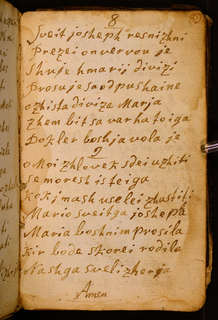 8
Sveit josheph resnizhni
Prezei on vervou je
Shushe hmarij divizi
Prosu je sa odpushaine
o zhista diviza Marja
zhem bit sa varha toiga
Dokler boshja vola je
9
o Moi zhlovek sdei uzhiti
se moresh is teiga
kok jmash use lei zhastiti
Mario sveitga joshepha
Maria boshnim prosila
kir bode skorei rodila
Nashga svelizherja
Amen